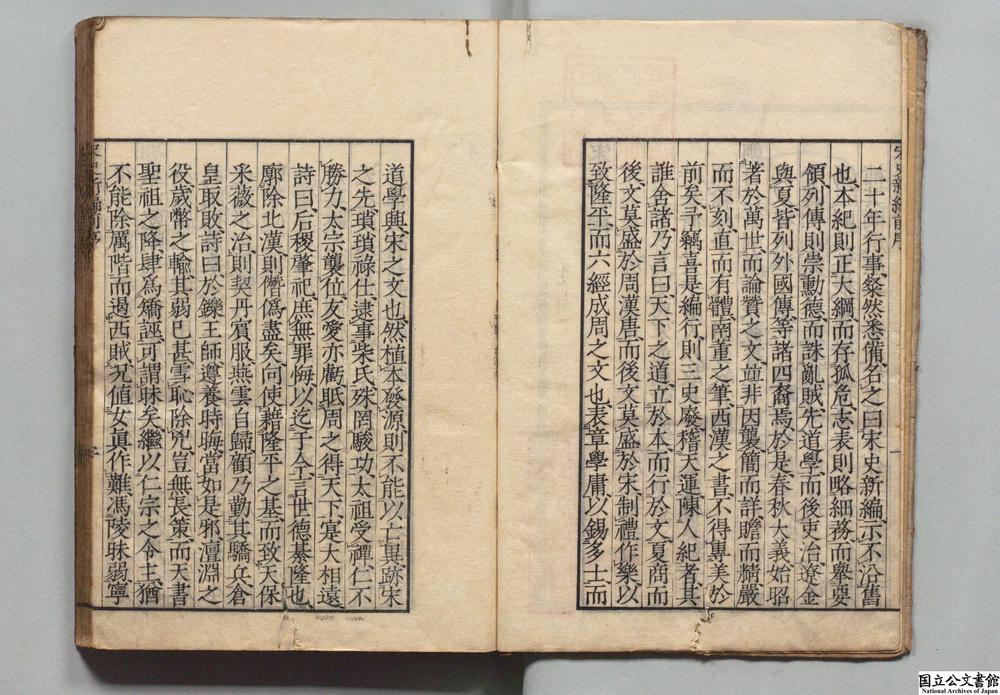 二十年行事、粲然悉備、名之曰宋史新編、示不沿舊
也、本紀則正大綱而存孤危、志表則略細務而舉要
領、列傳則崇勳德而誅亂賊、先道學而後吏治、遼金
與夏、皆列外國傳、等諸四裔焉、於是春秋大義、始昭
著於萬世、而論贊之文、竝非因襲、簡而詳、贍而精、嚴
而不刻、直而有體、南董之筆、西漢之書、不得專美於
前矣、予竊喜是編行、則三史廢、稽天運、陳人紀者、其
誰舍諸、乃言曰、天下之道、立於本而行於文、夏商而
後、文莫盛於周、漢唐而後、文莫盛於宋、制禮作樂、以
致隆平、而六經成、周之文也、表章學庸、以錫多士、而
道學興、宋之文也、然植本發源、則不能以亡異跡、宋
之先、瑣瑣祿仕、逮事柴氏、殊罔駿功、太祖受禪、仁不
勝力、太宗襲位、友愛亦虧、眡周之得天下、寔大相遠、
詩曰、后稷肇祀、庶無罪悔、以迄于今、言世德綦隆也、
廓除北漢、則僭僞盡矣、向使藉隆平之基、而致天保
采薇之治、則契丹賓服、燕雲自歸、顧乃勤其驕兵、倉
皇取敗、詩曰、於鑠王師、遵養時晦、當如是邪、澶淵之
役、歲幣之輸、其弱已甚、雪恥除兇、豈無長策、而天書
聖祖之降、肆爲矯誣、可謂昧矣、繼以仁宗之令主、猶
不能除厲階而遏西賊、況値女眞作難、馮陵昧弱、寧
宋史新編前序
國立公文書館
National Archives of Japan